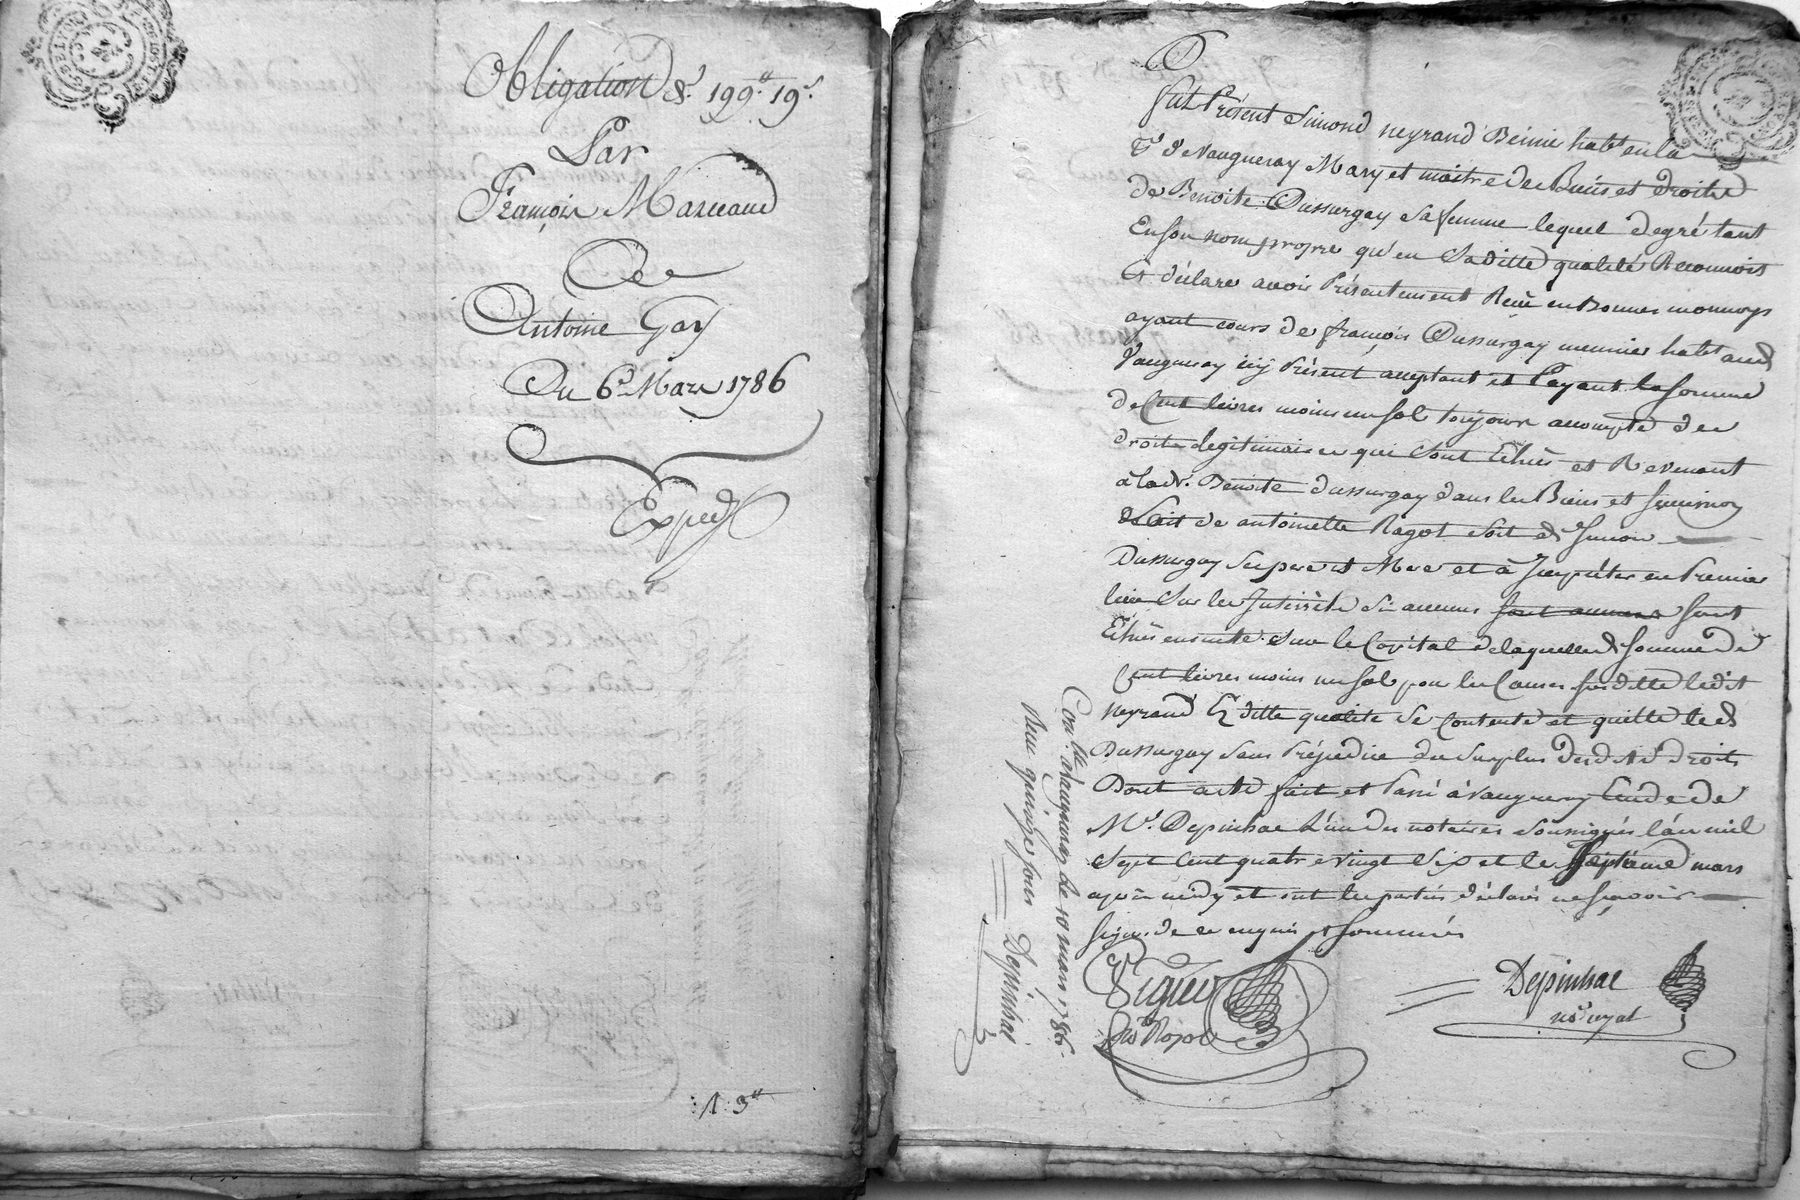 Obligation d. 199.ᵗᵗ 19.ˢ
Par
François Marceaud
A
Antoine Gay
Du 6ᵉ Mars 1786
Exped
1 3ᵗᵗ
fut Présent Simond neyrand habt en la
d Vaugneray Mary et maitre des Biens et droits
de Benoite Dussurgey sa femme lequel de gré tant
En son nom propre qu'en saditte qualité Reconnoit
Et déclare avoir Présentement Receu en Bonnes monnoys
ayant cours de françois Dussurgey meunier habt aud
Vaugneray icy Présent acceptant et Payant la somme
de Cent livres moins un sol toujours acompte des
droits legitimaires qui sont Echus et Revenant
à lad. Benoite dussurgey dans les Biens et
de antoinette Ragot soit de Simon
Dussurgey ses pere et Mere et à Imputer en Premier
lieu sur les Interrêts si aucuns sont aucuns sont
Echus ensuite sur le Capital de laquelle somme de
Cent livres moins un sol pour les Causes susditte ledit
neyrand En ditte qualité se Contente et quitte led
Dussurgey sans Préjudice du surplus desdits droits
Dont acte fait et Passé à Vaugneray Etude de
Mᵉ. Depinhac L'un des notaires soussignés l'an mil
sept cent quatre vingt six et le septieme mars
après midy et ont les parties déclaré ne sçavoir
signer de ce enquis et sommés
Viguer
nʳᵉ Royal
Depinhac
nʳᵉ royal
Conᵗˡᵉ a Vaugneray le 10 mars 1786.
Receu quinze sous Depinhac